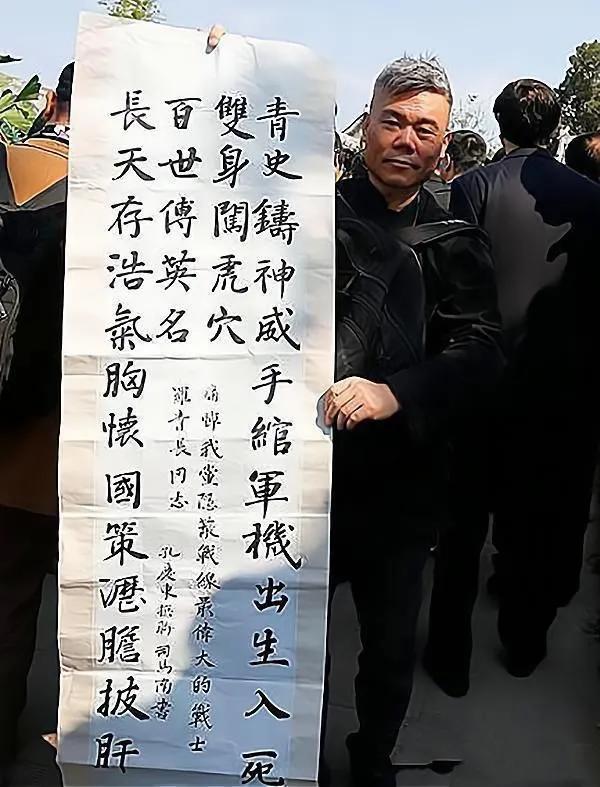 青史鑄神威手綰軍機出生入死
雙身闖虎穴
長天存浩氣胸懷國策瀝膽披肝
百世傳英名
痛悼我黨隱蔽戰線最偉大的戰士
羅青長同志
孔慶東撰聯 司馬南書